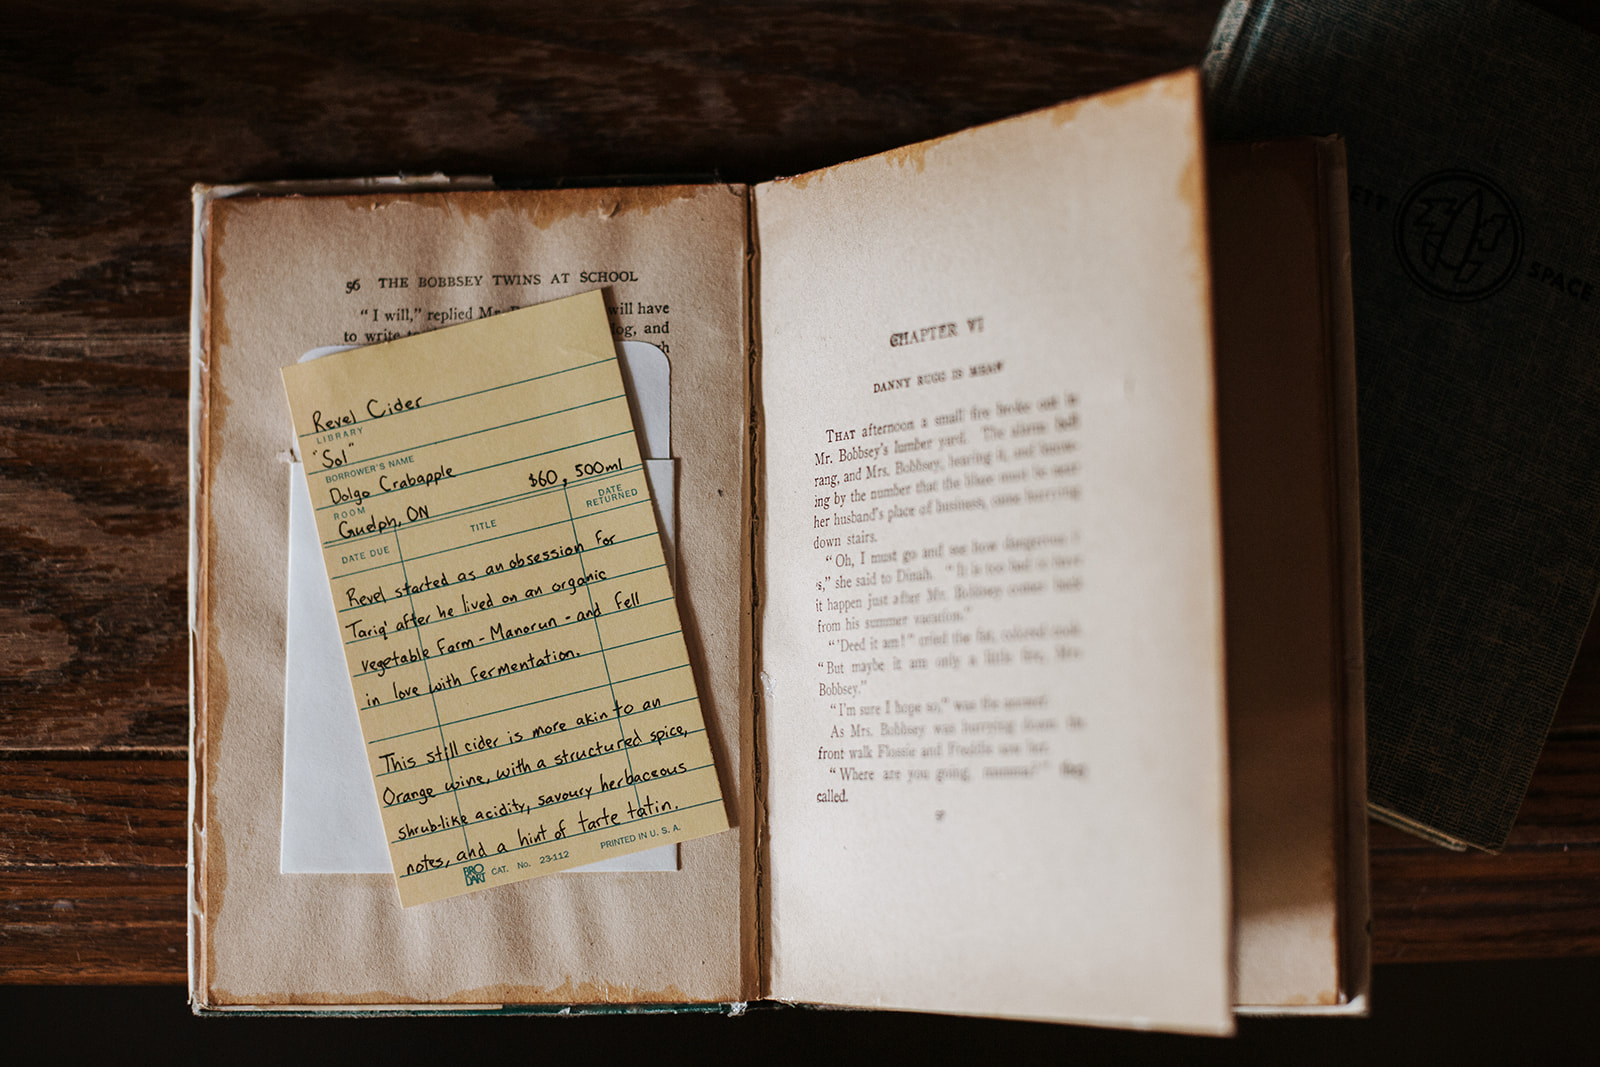 56 THE BOBBSEY TWINS AT SCHOOL
"I will," replied Mr. will have
to write log, and
Revel Cider
LIBRARY
"Sol"
BORROWER'S NAME
Dolgo Crabapple
$60, 500ml
ROOM
Guelph, ON
DATE DUE
TITLE
DATE
RETURNED
Revel started as an obsession for
Tariq' after he lived on an organic
vegetable farm - Manorun - and fell
in love with fermentation.
This still cider is more akin to an
Orange wine, with a structured spice,
shrub-like acidity, savoury herbaceous
notes, and a hint of tarte tatin.
BRO
DART
CAT. No. 23-112
PRINTED IN U. S. A.
CHAPTER VI
DANNY RUGG IS MEAN
THAT afternoon a small fire broke out in
Mr. Bobbsey's lumber yard. The alarm bell
rang, and Mrs. Bobbsey, hearing it, and
ing by the number that the blaze must be near
her husband's place of business, came hurrying
down stairs.
"Oh, I must go and see how dangerous it
s," she said to Dinah. "It is too bad to have
it happen just after Mr. Bobbsey comes back
from his summer vacation."
"'Deed it am!" cried the fat, colored cook.
"But maybe it am only a little fire, Mrs.
Bobbsey."
"I'm sure I hope so," was the answer.
As Mrs. Bobbsey was hurrying down the
front walk Flossie and Freddie saw her.
"Where are you going, mamma?" they
called.
SPACE